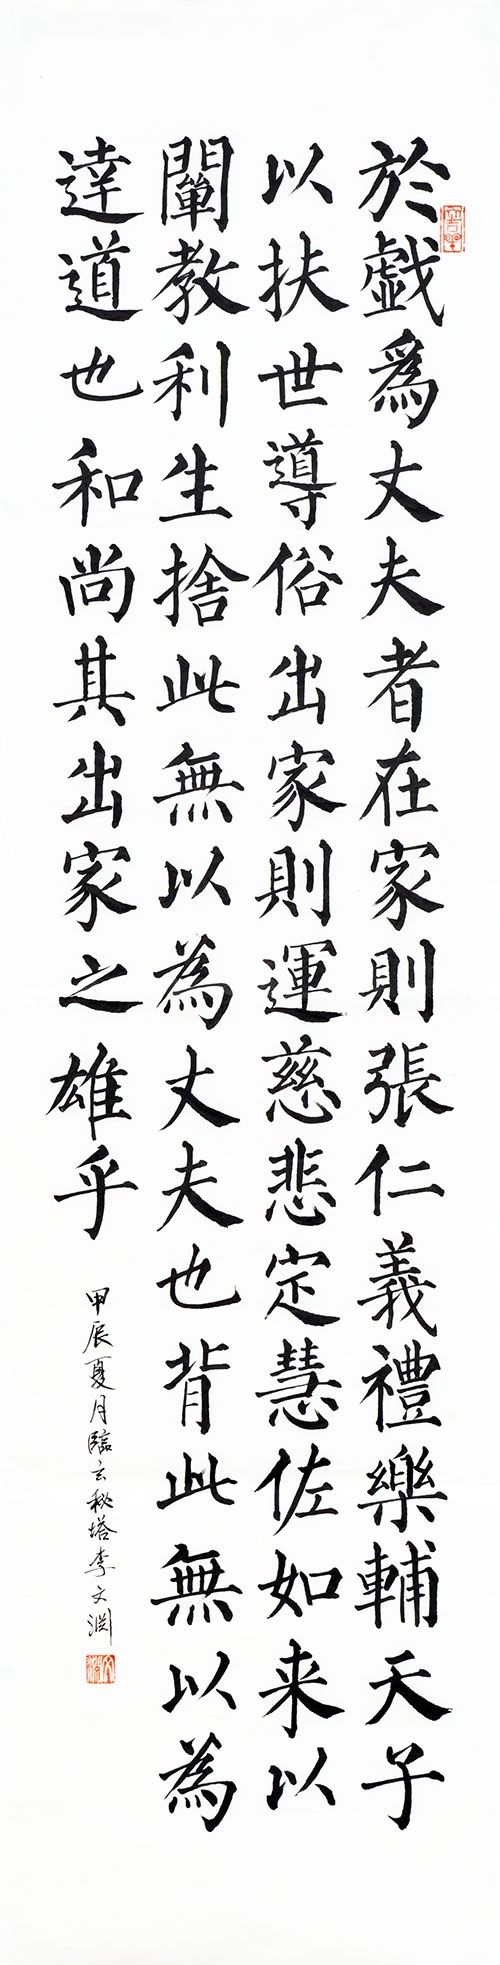 於戲為丈夫者在家則張仁義禮樂輔天子
以扶世導俗出家則運慈悲定慧佐如来以
闡教利生捨此無以為丈夫也背此無以為
達道也和尚其出家之雄乎
甲辰夏月臨玄秘塔李文淵